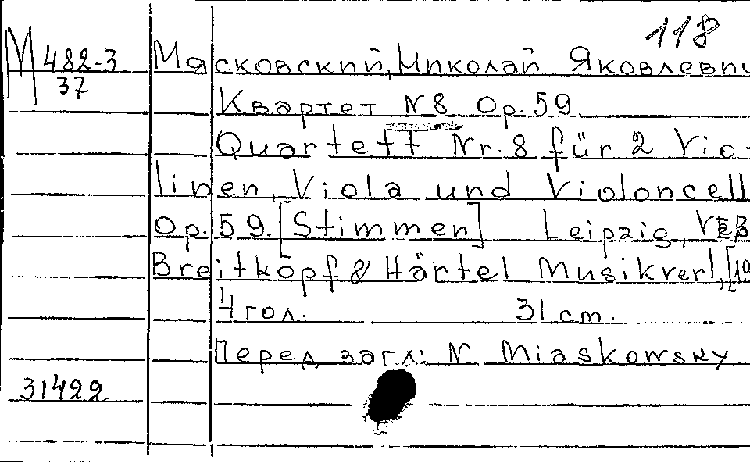 118
М 482-3
37
Мясковский, Николай Яковлевич
Квартет N 8 Op. 59.
Quartett Nr. 8 für 2 Vio-
linen, Viola und Violoncell
Op. 59. [Stimmen] Leipzig, VEB
Breitkopf & Härtel Musikverl., [19
4 гол. 31 cm.
Перед загл.: N. Miaskowsky
31422